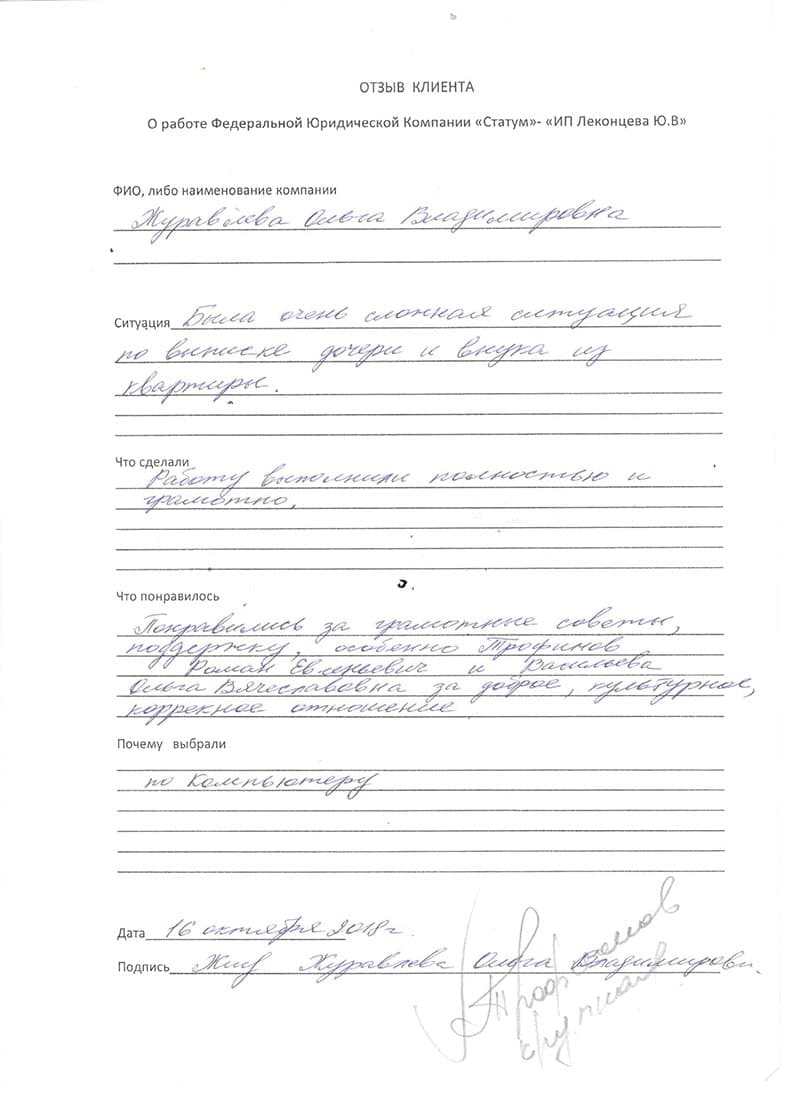 ОТЗЫВ КЛИЕНТА
О работе Федеральной Юридической Компании «Статум»- «ИП Леконцева Ю.В»
ФИО, либо наименование компании
Журавлева Ольга Владимировна
Ситуация Была очень сложная ситуация
по выписке дочери и внука из
квартиры.
Что сделали
Работу выполнили полностью и
грамотно.
Что понравилось
Понравились за грамотные советы,
поддержку, особенно Трофимов
Роман Евгеньевич и Васильева
Ольга Вячеславовна за доброе, культурное,
коррекное отношение
Почему выбрали
по Компьютеру
Дата 16 октября 2018г.
Подпись Журавлева Ольга Владимировн.